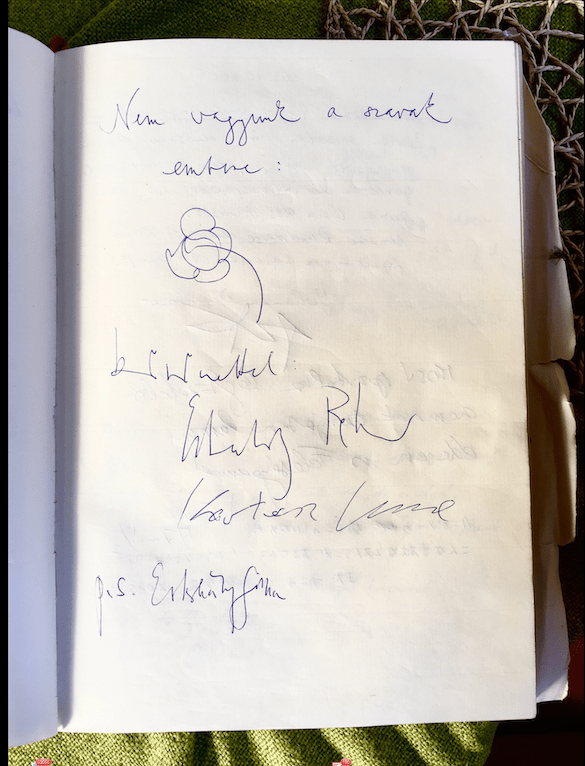 Nem vagyunk a szavak
embere:
köszönettel:
Esterházy Péter
Kertész Imre
p.s. Esterházy Gitta